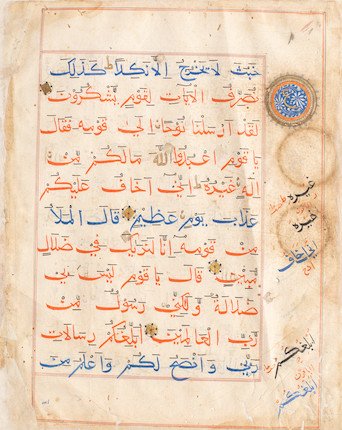 خَبُثَ لَا يَخْرُجُ إِلَّا نَكِدًا كَذَلِكَ
نُصَرِّفُ الْآيَاتِ لِقَوْمٍ يَشْكُرُونَ
لَقَدْ أَرْسَلْنَا نُوحًا إِلَى قَوْمِهِ فَقَالَ
يَا قَوْمِ اعْبُدُوا اللَّهَ مَالَكُمْ مِنْ
إِلَهٍ غَيْرُهُ إِنِّي أَخَافُ عَلَيْكُمْ
عَذَابَ يَوْمٍ عَظِيمٍ قَالَ الْمَلَأُ
مِنْ قَوْمِهِ إِنَّا لَنَرَيكَ فِي ضَلَالٍ
مُبِينٍ قَالَ يَا قَوْمِ لَيْسَ بِي
ضَلَالَةٌ وَلَكِنِّي رَسُولٌ مِنْ
رَبِّ الْعَالَمِينَ أُبَلِّغُكُمْ رِسَالَاتِ
رَبِّي وَأَنْصَحُ لَكُمْ وَأَعْلَمُ مِنَ
غيره
غيره
إني أخاف
أبلغكم
أبلغكم